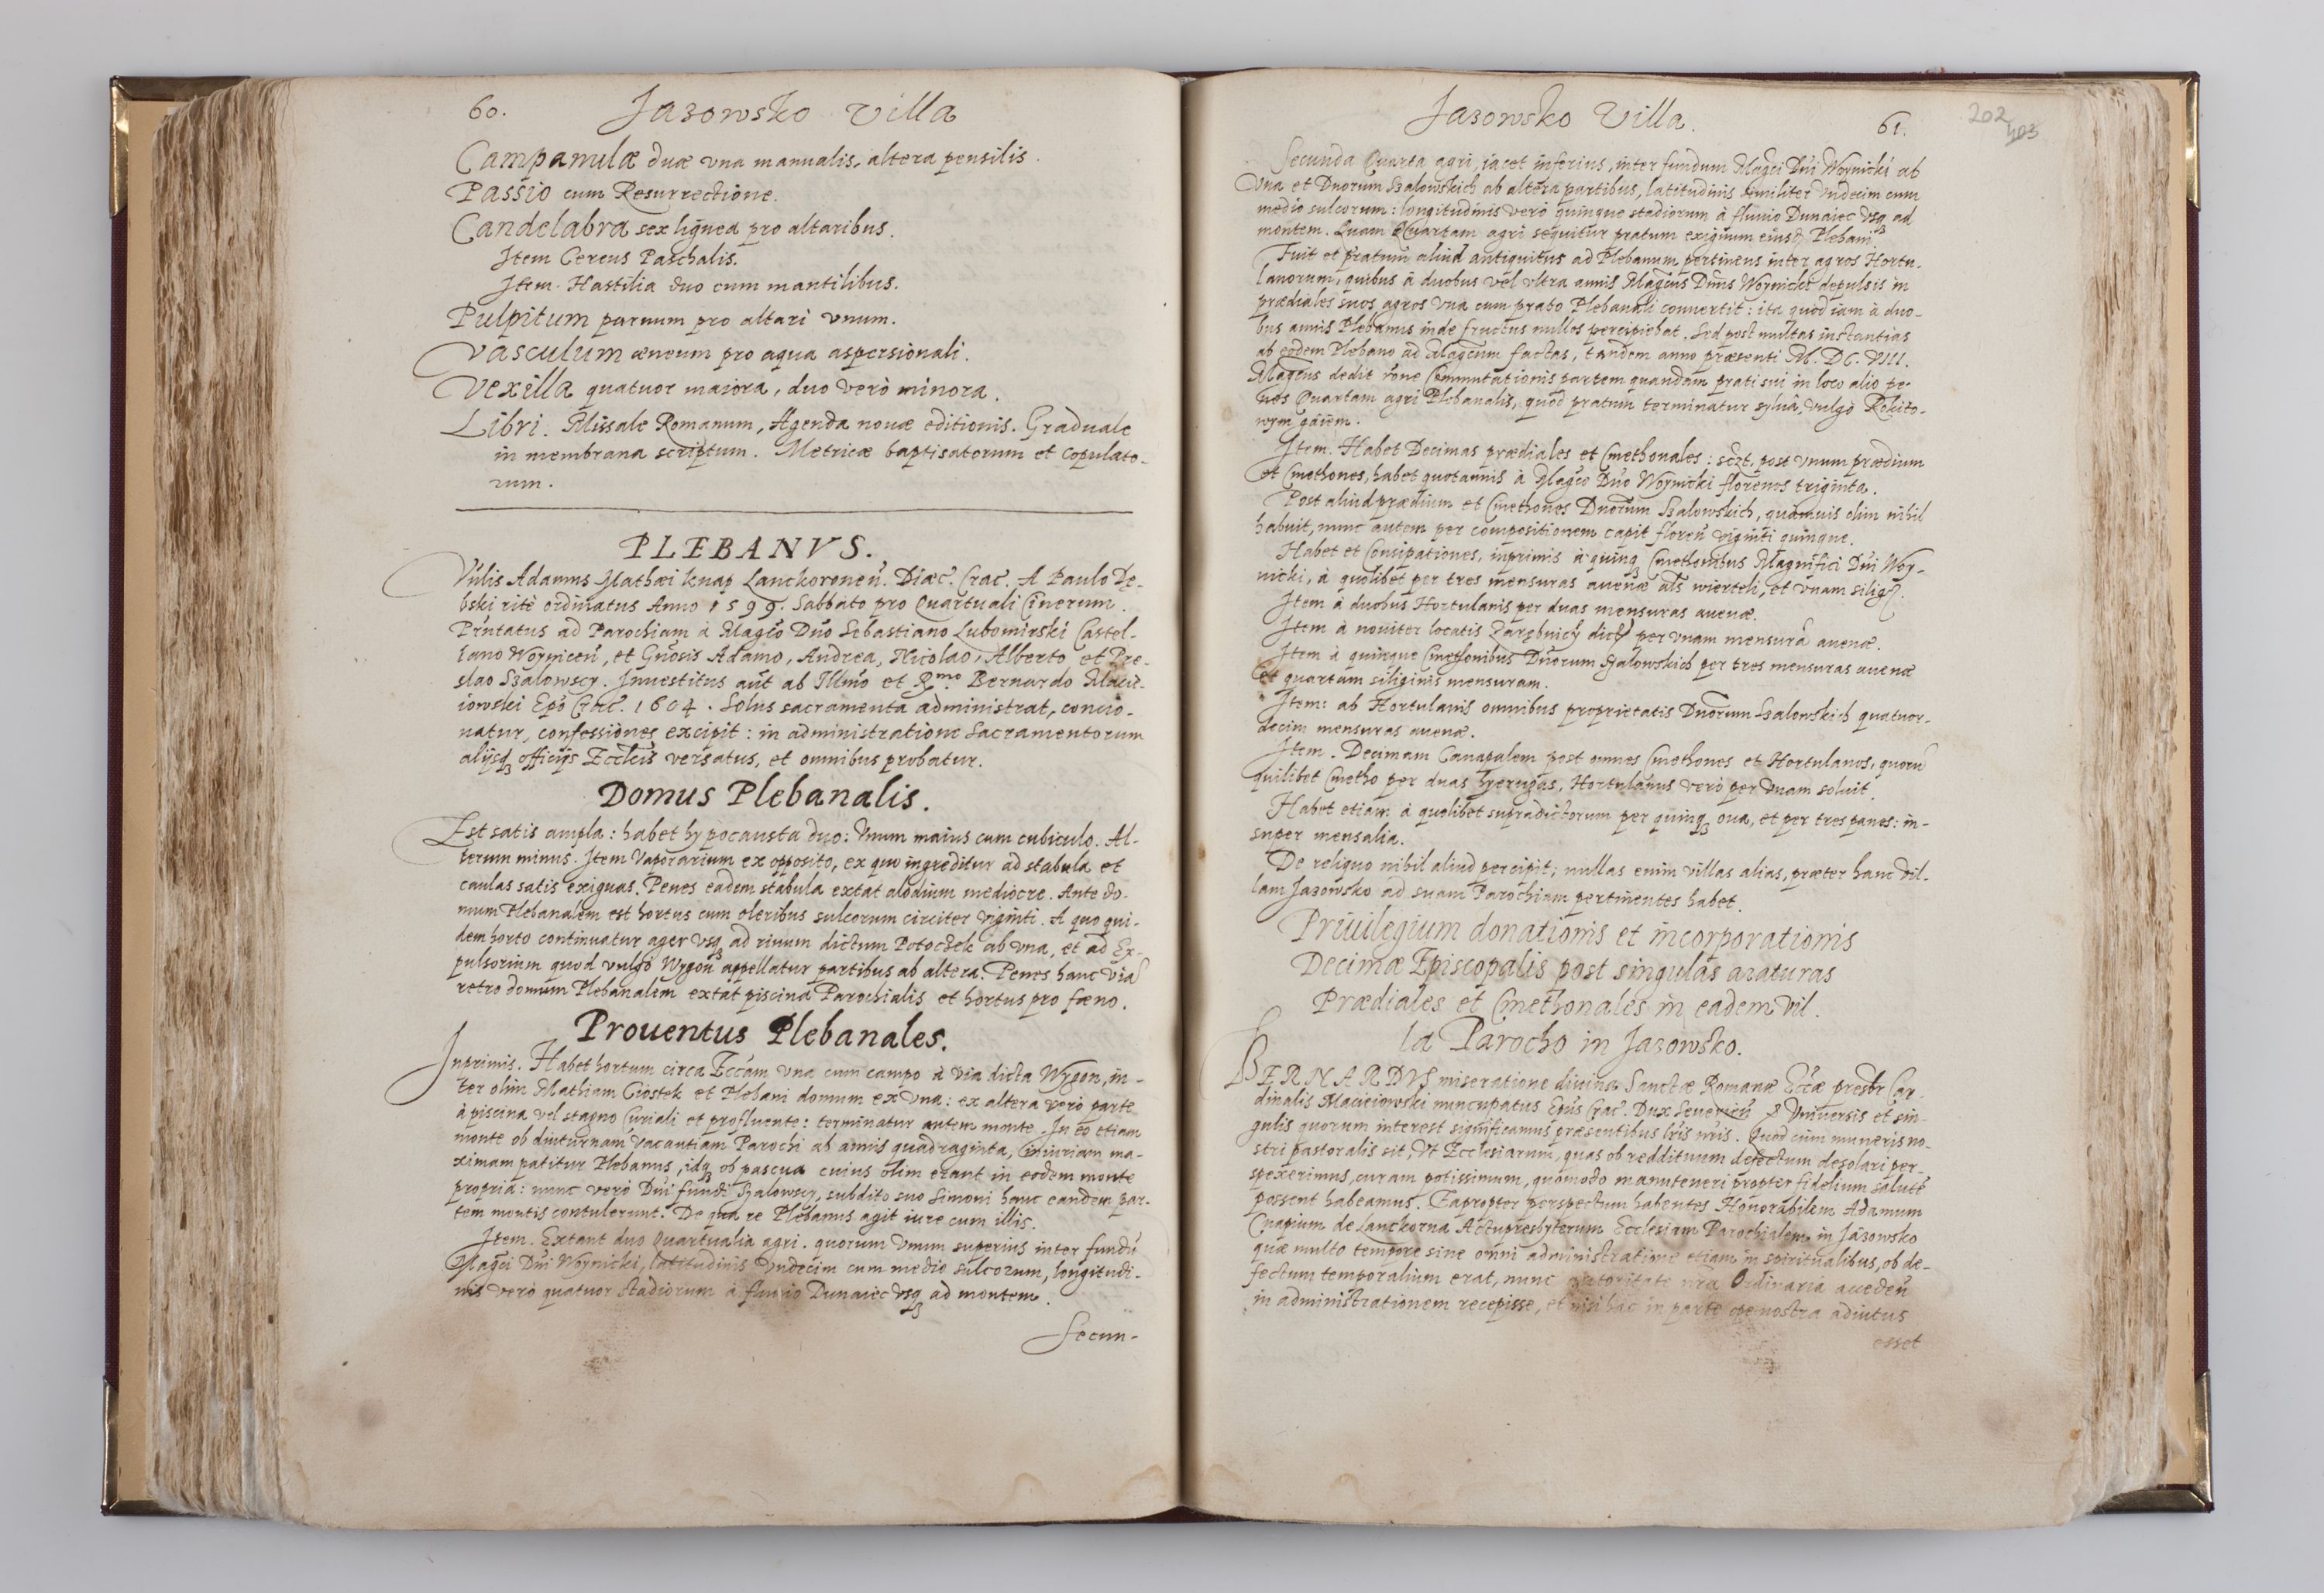 60. Jazowsko Villa
Campanulæ duæ vna manualis, altera pensilis.
Passio cum Resurrectione.
Candelabra sex lignea pro altaribus.
Item Cereus Paschalis.
Item. Hastilia duo cum mantilibus.
Pulpitum paruum pro altari vnum.
Vasculum æneum pro aqua aspersionali.
Vexilla quatuor maiora, duo verò minora.
Libri. Missale Romanum, Agenda nouæ editionis. Graduale
in membrana scriptum. Metricæ baptisatorum et Copulato-
rum.
PLEBANVS.
Vñlis Adamus Mathæi Knap Lanckoroneñ. Diæc. Crac. A Paulo Dę-
bski ritè ordinatus Anno 1599. Sabbato pro Quartuali Cinerum.
Prñtatus ad Parochiam à Magco Dño Sebastiano Lubomirski Castel-
lano Woyniceñ, et Gñosis Adamo, Andrea, Nicolao, Alberto et Pre-
slao Szalowscy. Inuestitus aũt ab Illmo et Rmo. Bernardo Macie-
iowski Epõ Crac. 1604. Solus sacramenta administrat, concio-
natur, confessiones excipit: in administratione Sacramentorum
alijsq; officijs Ecclcis versatus, et omnibus probatur.
Domus Plebanalis.
Est satis ampla: habet hypocausta duo: Vnum maius cum cubiculo. Al-
terum minus. Item Vaporarium ex opposito, ex quo ingreditur ad stabula et
caulas satis exiguas. Penes eadem stabula extat aldaium mediocre. Ante do-
mum Plebanalem est hortus cum oleribus sulcorum circiter viginti. A quo qui-
dem horto continuatur ager vsq; ad riuum dictum Potoczek ab vna, et ad Ex-
pulsorium quod vulgo Wygoñ appellatur partibus ab altera. Penes hanc viã
retro domum Plebanalem extat piscina Parochialis et hortus pro fæno.
Prouentus Plebanales.
Inprimis. Habet hortum circa Eccãm vna cum campo à via dicta Wygon, in-
ter olim Mathiam Ciostek et Plebani domum ex vna: ex altera verò parte
à piscina vel stagno Curiali et profluente: terminatur autem monte. In eo etiam
monte ob diuturnam vacantiam Parochi ab annis quadraginta, iniuriam ma-
ximam patitur Plebanus, idq; ob pascua cuius olim erant in eodem monte
propria: nunc verò Dñi fundi Szalowscy, subdito suo Simoni hanc eandem par-
tem montis contulerunt. De qua re Plebanus agit iure cum illis.
Item. Extant duo Quartualia agri. quorum vnum superius inter fundũ
Magci Dñi Woynicki, latitudinis vndecim cum medio sulcorum, longitudi-
nis verò quatuor stadiorum à fluuio Dunaiec vsq; ad montem.
Secun-
Jazowsko Villa. 61.
202
403
Secunda Quarta agri, iacet inferius, inter fundum Magci Dñi Woynicki ab
vna et Dnorum Szalowskich ab altera partibus, latitudinis similiter vndecim cum
medio sulcorum: longitudinis verò quinque stadiorum à fluuio Dunaiec vsq; ad
montem. Quam Quartam agri sequitur pratum exiguum eiusd. Plebani.
Fuit et pratum aliud antiquitus ad Plebanum pertinens inter agros Hortu-
lanorum, quibus à duobus vel vltra annis Magcus Dñus Woynicki depulsis in
prædiales suos agros vna cum prato Plebanali conuertit: ita quod iam à duo-
bus annis Plebanus inde fructus nullos percipiebat. Sed post multas instantias
ab eodem Plebano ad Magcum factas, tandem anno præsenti M.DC.VIII.
Magcus dedit rõne Commutationis partem quandam prati sui in loco alio pe-
nes Quartam agri Plebanalis, quod pratum terminatur sylua, vulgo Rokito-
wym gaiem.
Item. Habet Decimas prædiales et Cmethonales: sczt. post vnum prædium
et Cmethones, habet quotannis à Magco Dño Woynicki florenos triginta.
Post aliud prædium et Cmethones Dnorum Szalowskich, quamuis olim nihil
habuit, nunc autem per compositionem capit floreñ viginti quinque.
Habet et Consipationes, inprimis à quinq; Cmethonibus Magnifici Dñi Woy-
nicki, à quolibet per tres mensuras auenæ als wierteli, et vnam silig.
Item à duobus Hortulanis per duas mensuras auenæ.
Item à nouiter locatis Zarębnicy dict. per vnam mensurã auenæ.
Item à quinque Cmethonibus Dnorum Szalowskich per tres mensuras auenæ
et quartam siliginis mensuram.
Item: ab Hortulanis omnibus proprietatis Dnorum Szalowskich quatuor-
decim mensuras auenæ.
Item. Decimam Canapalem post omnes Cmethones et Hortulanos, quorũ
quilibet Cmetho per duas hyerugas, Hortulanus verò per vnam soluit.
Habet etiam à quolibet supradictorum per quinq; oua, et per tres panes: in-
super mensalia.
De reliquo nihil aliud percipit; nullas enim villas alias, præter hanc vil-
lam Jazowsko ad suam Parochiam pertinentes habet.
Priuilegium donationis et incorporationis
Decimæ Episcopalis post singulas araturas
Prædiales et Cmethonales in eadem Vil.
la Parocho in Jazowsko.
BERNARDVS miseratione diuina Sanctæ Romanæ Eccæ presbr Car-
dinalis Macieiowski nuncupatus Epũs Crac. Dux Seuerieñ & Vniuersis et sin-
gulis quorum interest significamus præsentibus lris nris. Quod cùm muneris no-
stri pastoralis sit, vt Ecclesiarum, quas ob reddituum defectum desolari per-
spexerimus, curam potissimum, quomodo manuteneri propter fidelium salutẽ
possent habeamus. Eapropter perspectum habentes Honorabilem Adamum
Cnapium de Lanckorna Actupresbyterum Ecclesiam Parochialem in Jazowsko
quæ multo tempore sine omni administratione etiam in spiritualibus, ob de-
fectum temporalium erat, nunc autoritate nra Ordinaria accedeñ
in administrationem recepisse, et nisi hac in parte ope nostra adiutus
esset